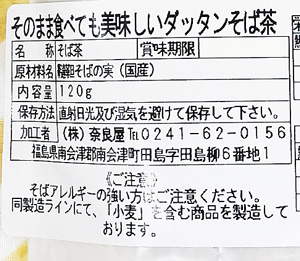 そのまま食べても美味しいダッタンそば茶
名 称 そば茶 賞味期限
原材料名 韃靼そばの実（国産）
内容量 120g
保存方法 直射日光及び湿気を避けて保存して下さい。
加工者 （株）奈良屋 ℡0241-62-0156
福島県南会津郡南会津町田島字田島柳6番地1
《ご注意》
そばアレルギーの強い方はご注意ください。
同製造ラインにて、「小麦」を含む商品を製造して
おります。